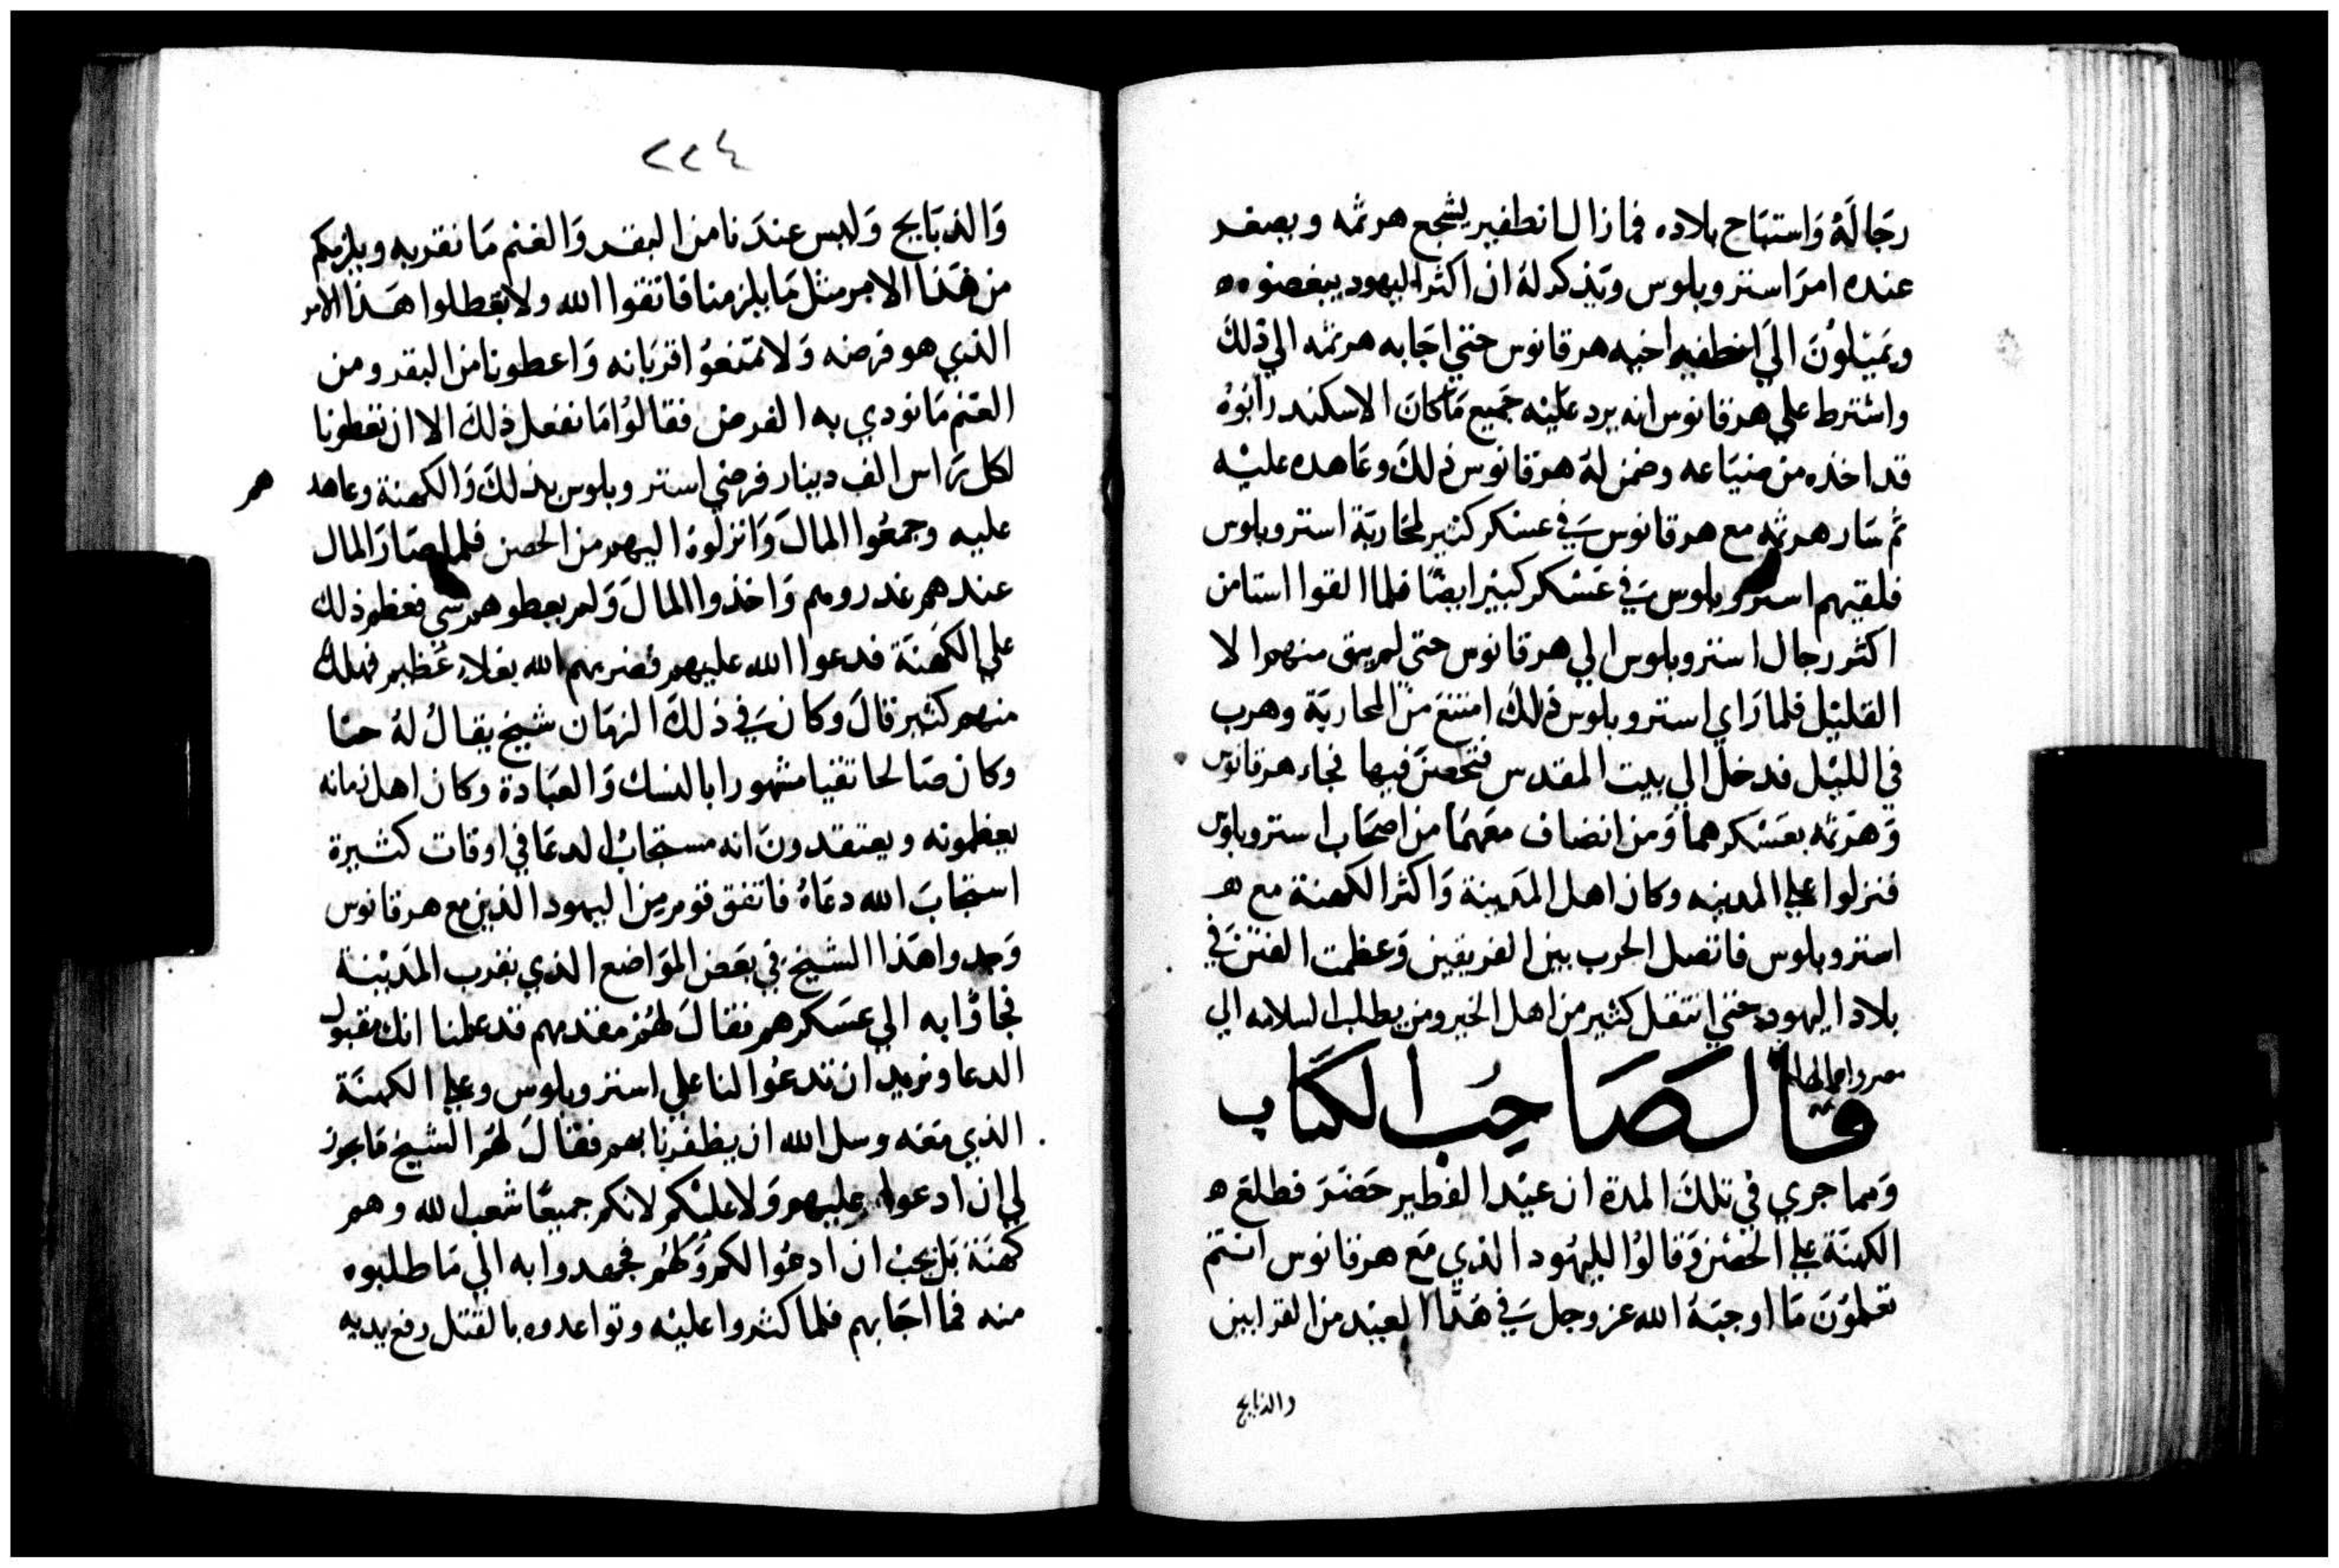 رجاله واستباح بلاده فما زال انطفير يشجع هرثمه ويصغر
عنده امر استروبلوس ويذكر له ان اكثر اليهود يبغضوه
ويميلون الي اخيه هرقانوس حتي اجابه هرثمه الي ذلك
واشترط علي هرقانوس انه يرد عليه جميع ما كان الاسكندر ابوه
قد اخذه من ضياعه وضمن له هرقانوس ذلك وعاهده عليه
ثم سار هرثمه مع هرقانوس في عسكر كثير لمحاربة استروبلوس
فلقيهم استروبلوس في عسكر كبير ايضا فلما القوا استامن
اكثر رجال استروبلوس الي هرقانوس حتي لم يبق منهم الا
القليل فلما راي استروبلوس ذلك امتنع من المحاربة وهرب
في الليل فدخل الي بيت المقدس فتحصن فيها فجاء هرقانوس
وهرثمه بعسكرهما ومن انضاف معهما من اصحاب استروبلوس
فنزلوا علي المدينه وكان اهل المدينة واكثر الكهنة مع
استروبلوس فاتصل الحرب بين الفريقين وعظمت الفتن في
بلاد اليهود حتي انتقل كثير من اهل الخير ومن يطلب السلامه الي
مصر
قال صاحب الكتاب
ومما جري في تلك المدة ان عيد الفطير حضر فطلع
الكهنة علي الحصن وقالوا لليهود الذي مع هرقانوس انتم
تعلمون ما اوجبه الله عز وجل في هذا العيد من القرابين
والذبايح
٢٢٤
والذبايح وليس عندنا من البقر والغنم ما نقربه ويلزمكم
من هذا الامر مثل ما يلزمنا فاتقوا الله ولا تبطلوا هذا الامر
الذي هو فرضه ولا تمنعوا قربانه واعطونا من البقر ومن
الغنم ما نودي به الفرض فقالوا ما نفعل ذلك الا ان تعطونا
لكل راس الف دينار فرضي استروبلوس بذلك والكهنة وعاهد
هم
عليه وجمعوا المال وانزلوه اليهم من الحصن فلما صار المال
عندهم غدروهم واخذوا المال ولم يعطوهم شي فعظم ذلك
علي الكهنة فدعوا الله عليهم فضربهم الله بغلاء عظيم فهلك
منهم كثير قال وكان في ذلك الزمان شيخ يقال له حنا
وكان صالحا تقيا مشهورا بالنسك والعبادة وكان اهل زمانه
يعظمونه ويعتقدون انه مستجاب الدعا في اوقات كثيرة
استجاب الله دعاه فاتفق قوم من اليهود الذين مع هرقانوس
وجدوا هذا الشيخ في بعض المواضع الذي بقرب المدينة
فجاوا به الي عسكرهم فقال لهم مقدمهم قد علمنا انك مقبول
الدعا ونريد ان تدعوا لنا علي استروبلوس وعلي الكهنة
الذي معه وسل الله ان يظفرنا بهم فقال لهم الشيخ ما يجوز
لي ان ادعوا عليهم ولا عليكم لانكم جميعا شعب الله وهم
كهنة بل يجب ان ادعوا لكم ولهم فجهدوا به الي ما طلبوه
منه فما اجابهم فلما كثروا عليه وتواعدوه بالقتل رفع يديه